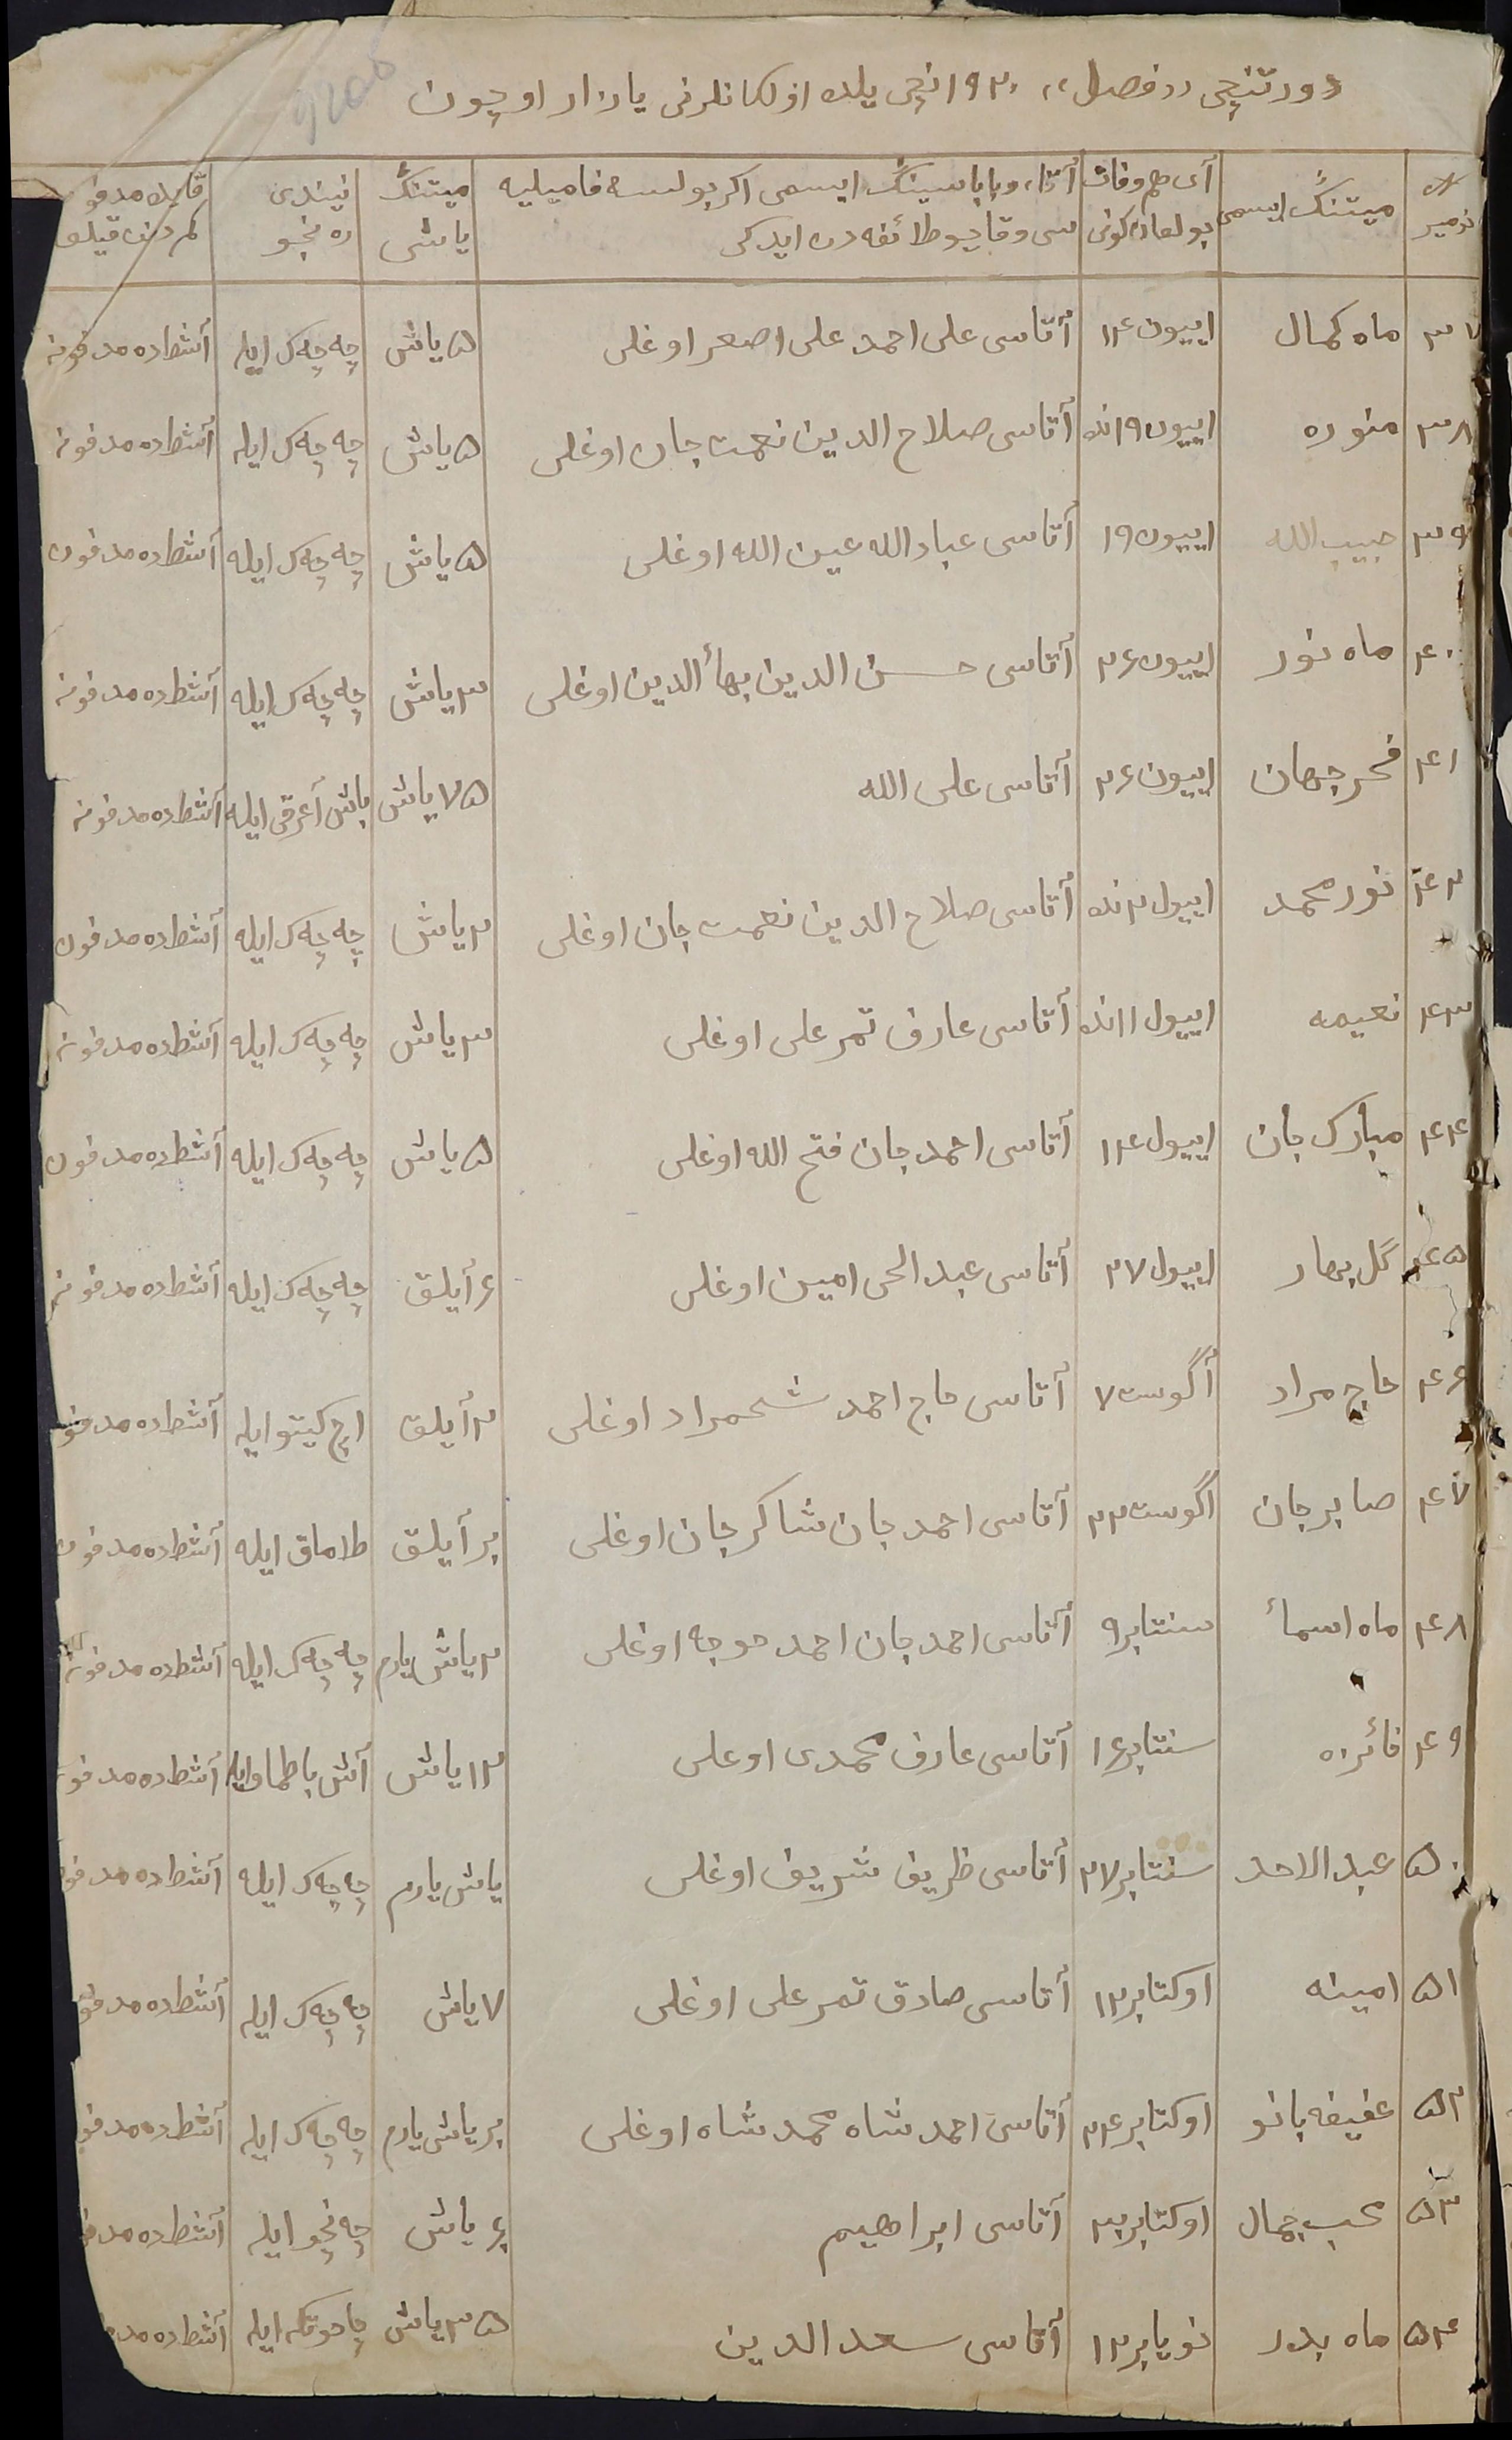 دورتنچی «فصل» ۱۹۲۰ نچی یلده اولكانلرنی یازار اوچون
نومیر میتنڭ ایسمی آی هم وفات بولغان كونی آتا، و باباسینڭ ایسمی اكر بولسه فامیلیه سی و قایو طائفه دن ایدكی میتنڭ یاشی نیندی رنجو قایده مدفون كم دفن قیلغو
۳۷ ماه كمال اییون ۱۴ آتاسی علی احمد علی اصعر اوغلی ۵ یاش چه چه ك ایله آشطاده مدفونه
۳۸ منوره اییون ۱۹ نده آتاسی صلاح الدین نعمت جان اوغلی ۵ یاش چه چه ك ایله آشطاده مدفونه
۳۹ حبیب الله اییون ۱۹ آتاسی عبادالله عین الله اوغلی ۵ یاش چه چه ك ایله آشطاده مدفون
۴۰ ماه نور اییون ۲۶ آتاسی حسن الدین بهأ الدین اوغلی ۳ یاش چه چه ك ایله آشطاده مدفونه
۴۱ فخر جهان اییون ۲۶ آتاسی علی الله ۷۵ یاش باش أغرقی ایله آشطاده مدفونه
۴۲ نور محمد اییول ۲ نده آتاسی صلاح الدین نعمت جان اوغلی ۲ یاش چه چه ك ایله آشطاده مدفون
۴۳ نعیمه اییول ۱۱ نده آتاسی عارف تمر علی اوغلی ۳ یاش چه چه ك ایله آشطاده مدفونه
۴۴ مبارك جان اییول ۱۴ آتاسی احمد جان فتح الله اوغلی ۵ یاش چه چه ك ایله آشطاده مدفون
۴۵ گل بهار اییول ۲۷ آتاسی عبد الحی امین اوغلی ۶ أیلق چه چه ك ایله آشطاده مدفونه
۴۶ حاج مراد أگوست ۷ آتاسی حاج احمد شحمراد اوغلی ۲ أیلق اچ كیتو ایله آشطاده مدفو
۴۷ صابر جان اگوست ۲۲ آتاسی احمد جان شاكر جان اوغلی بر أیلق طاماق ایله آشطاده مدفون
۴۸ ماه اسمأ سنتابر ۹ آتاسی احمد جان احمد حوجه اوغلی ۲ یاش یارم چه چه ك ایله آشطاده مدفونه
۴۹ فائزه سنتابر ۱۶ آتاسی عارف محمدی اوعلی ۱۲ یاش آش باطماو ایله آشطاده مدفو
۵۰ عبد الاحد سنتابر ۲۷ آتاسی ظریف شریف اوغلی یاش یارم چه چه ك ایله آشطاده مدفو
۵۱ امینه اوكتابر ۱۲ آتاسی صادق تمر علی اوغلی ۷ یاش چه چه ك ایله آشطاده مدفو
۵۲ عفیفه بانو اوكتابر ۲۴ آتاسی احمد شاه محمد شاه اوغلی بر یاش یارم چه چه ك ایله آشطاده مدفو
۵۳ محب جمال اوكتابر آتاسی ابراهیم ۶ یاش ایله آشطاده مدف
۵۴ ماه بدر نویابر ۱۲ آتاسی سعد الدین ۳۵ یاش چاحوتكه ایله آشطاده مد